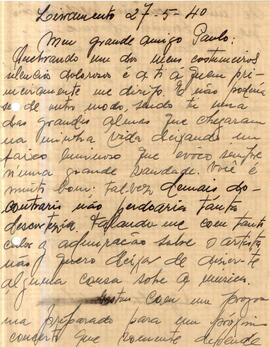 Livramento 27-5-40
Meu grande amigo Paulo:
Quebrando um dos meus costumeiros
silencios dolorosos é a ti a quem pri-
meiramente me dirijo. E não podia
ser de outro modo, sendo tu uma
das grandes almas que chegaram
na minha vida deixando um
luminoso que evoco sempre
numa grande saudade. Você é
muito bom. Talvez, demais do
contrario não perdoaria tanta
descortezia. Fallando-me com tanto
calor e admiração sobre o artista,
não quero deixar de dizer-te
alguma cousa sobre a musica.
com um progra-
ma preparado para um próximo
concerto que somente depende